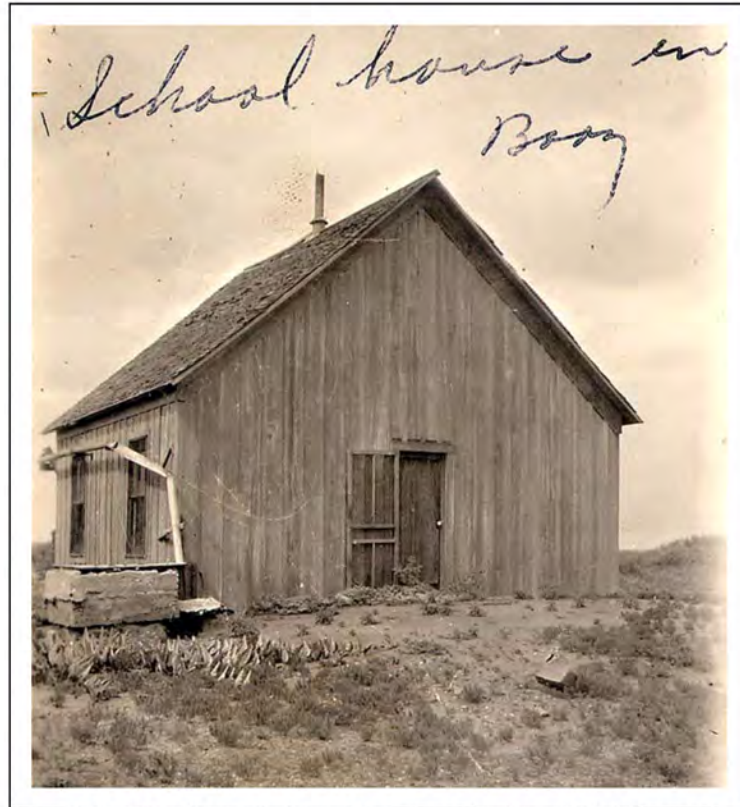 School house in
Boaz